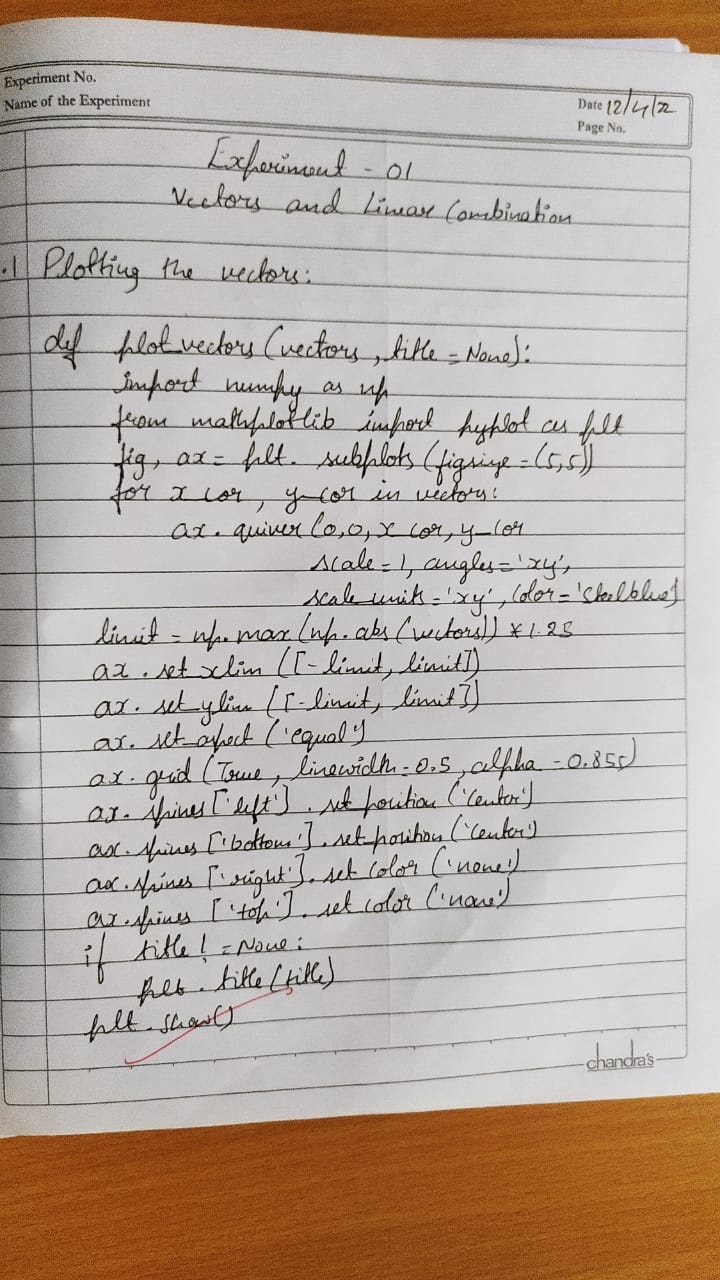 Experiment No.
Name of the Experiment
Date 12/4/22
Page No.
Experiment - 01
Vectors and Linear Combination
.1 Plotting the vectors:
def plot_vectors (vectors, title = None):
import numpy as np
from mathplotlib import pyplot as plt
fig, ax = plt. subplots (figsize = (5,5))
for x cor, y_cor in vectors:
ax. quiver (0,0, x cor, y_cor
scale = 1, angles = 'xy',
scale units = 'xy', color = 'steelblue')
limit = np. max (np. abs (vectors)) * 1.25
ax . set xlim ([-limit, limit])
ax. set ylim ([-limit, limit])
ax. set aspect ('equal')
ax. grid (True, linewidth = 0.5, alpha = 0.855)
ax. spines ['left'] . set position ('center')
ax. spines ['bottom']. set position ('center')
ax. spines ['right']. set color ('none')
ax. spines ['top']. set color ('none')
if title ! = None:
plt . title (title)
plt . show()
chandra's